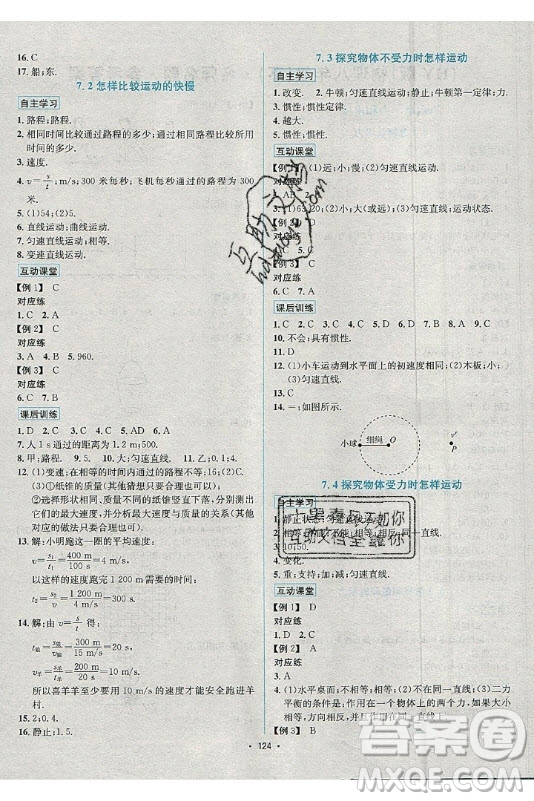 16. C
17. 船;东.
7.2 怎样比较运动的快慢
自主学习
1. 路程;路程.
2. 相同时间比较通过路程的多少;通过相同路程所用时间的多少.
3. 速度.
4. v=s/t;m/s;300 米每秒;飞机每秒通过的路程为 300 米.
5. (1)54;(2)5.
6. 直线运动;曲线运动.
7. 匀速直线运动;相等.
8. 变速直线运动.
互动课堂
【例 1】 C
对应练
1. C 2. A
【例 2】 C
对应练
3. A 4. B 5. 960.
【例 3】 C
对应练
6. C 7. B
课后训练
1. D 2. C 3. B 4. D 5. B 6. C
7. 人 1 s 通过的距离为 1.2 m;500.
8. 甲;路程. 9. 5. 10. 大;匀速直线. 11. 乙;40.
12. (1)变速;在相等的时间内通过的路程不等.
(2)①纸锥的质量(其他猜想只要合理也可以)
②选择形状相同、质量不同的纸锥竖直下落,测出它们的最大速度,并分析最大速度与质量的关系(其他正确的做法只要合理也可以)
13. 解:小明跑这一圈的平均速度:
v=s/t₁=400 m/100 s=4 m/s
以这样的速度跑完 1 200 m 需要的时间:
t₂=s₂/v=1 200 m/4 m/s=300 s
14. 解:由 v=s/t 得:
=300 m/15 m/s=20 s
=400 m/20 m/s=20 s
所以喜羊羊在被追上之前能安全跑进羊村.
15. 2;0.4.
16. 静止;1.5.
7.3 探究物体不受力时怎样运动
自主学习
1. 改变. 2. 牛顿;匀速直线运动;静止;牛顿第一定律;力.
3. 惯性;惯性定律.
4. 越大.
5. 惯性;惯性.
互动课堂
【例 1】 (1)远;小;慢;(2)匀速直线运动.
对应练
1. A 2.
3. (1)63.20;(2)小;大(或远);(3)匀速直线;运动状态.
【例 2】 C
对应练
4. C 5.
【例 3】 C
对应练
6. C 7. D
课后训练
1. C 2. C 3. C 4. D 5. C 6. B 7. D 8. B 9. D
10. 不会;具有惯性.
11. D
12. (1)小车运动到水平面上的初速度相同;(2)木板;小;
(3)匀速直线.
14. =如图所示.
小球
细绳
O
P
7.4 探究物体受力时怎样运动
自主学习
1. 静止状态
3. 10;50.
4. 变化.
5. 重;支持;加;减;匀速直线.
互动课堂
【例 1】 D
对应练
1. B 2. D
【例 2】 A
对应练
3. B
4. (1)水平桌面;不在同一直线;不在同一直线;(2)二力平衡的条件
· 124 ·
互助文档
十里春风不如你
互助文档全靠你
答案圈
MXQE.COM